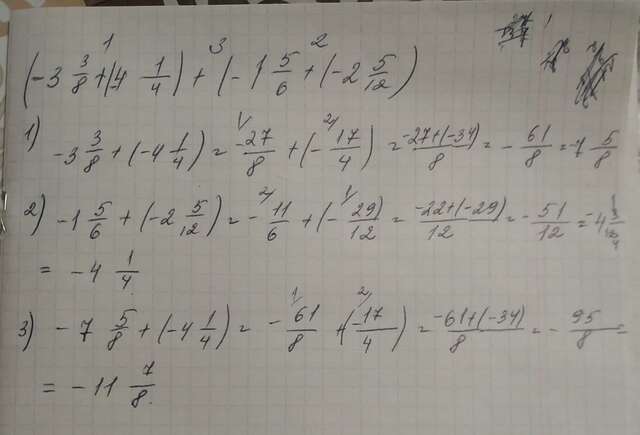 (-3 3/8 + (4 1/4) + (-1 5/6 + (-2 5/12)
1) -3 3/8 + (-4 1/4) = -27/8 + (-17/4) = -27+(-34)/8 = -61/8 = -7 5/8
2) -1 5/6 + (-2 5/12) = -11/6 + (-29)/12 = -22+(-29)/12 = -51/12 = -4
= -4 1/4
3) -7 5/8 + (-4 1/4) = -61/8 + (-17/4) = -61+(-34)/8 = -95/8 =
= -11 7/8.